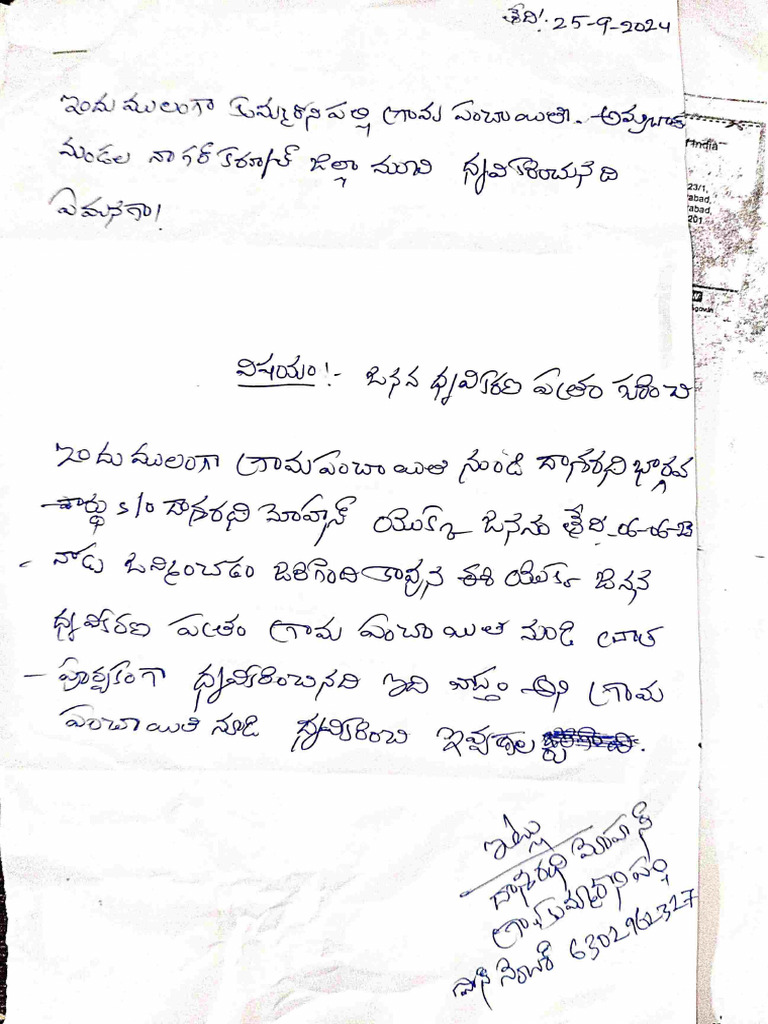 తేది! 25-9-2024
ఇందు ములంగా కుమ్మరోనిపల్లి గ్రామ పంచాయితి. అమ్రబాద్
మండల నాగర్ కర్నూల్ జిల్లా నుంచి ధృవికరించునేది
ఏమనగా!
విషయం!- జనన ధృవికరణ పత్రం ఖరించి
ఇందు ములంగా గ్రామపంచాయితి నుండి దాశరథి భార్గవ
S/o దాశరథి మోహన్ యొక్క జనేను తేది. 06-06-23
- నాడు జన్మించడం జరిగింది కావున ఈ యొక్క జన్ననే
ధృవికరణ పత్రం గ్రామ పంచాయితి నుండి రాత
- పూర్వకంగా ధృవికరించినది ఇది వాస్తం అని గ్రామ
పంచాయితి నూడి ధృవికరించి ఇవ్వగల
ఇట్లు
దాశరథి మోహన్
గ్రా. కుమ్మరోనిపల్లి
ఫోన్ నెంబర్ 6302962327
India
23/1,
abad,
abad,
201
gov.in